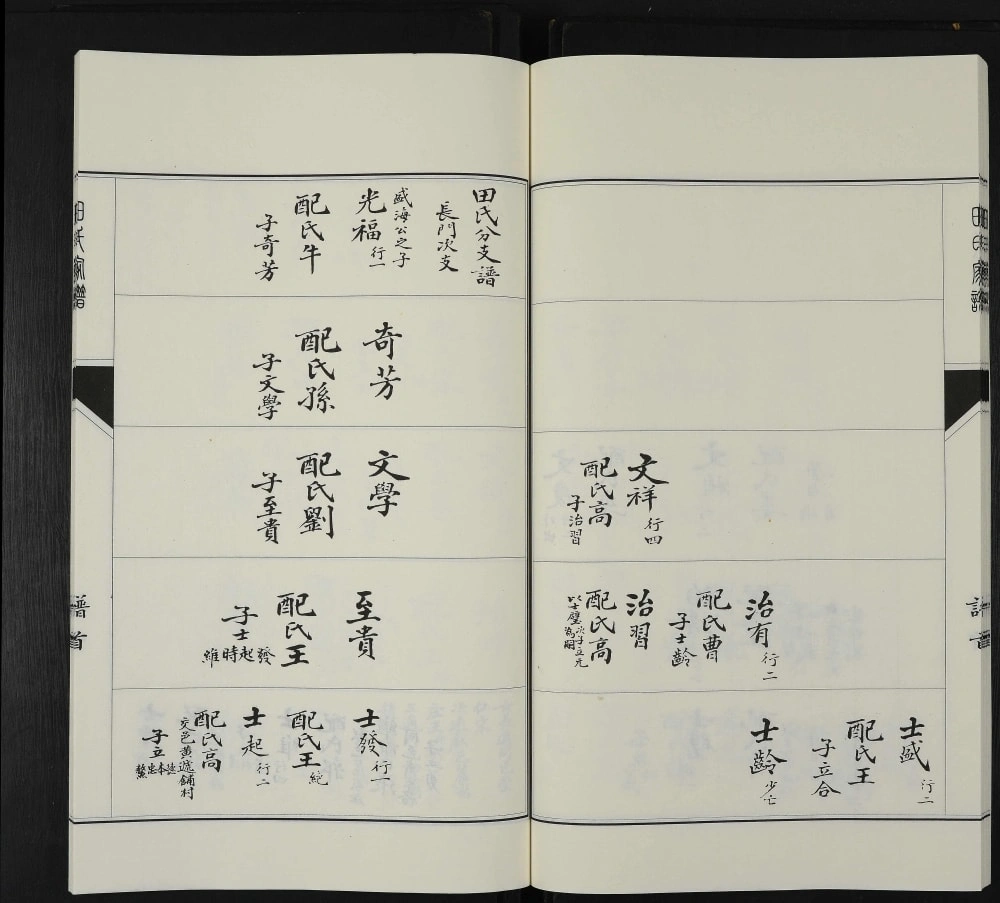 田氏家譜
文祥 行四
配氏高
子治習
治有 行二
配氏曹
子士齡
治習
配氏高
士盛 行二
配氏王
子立合
士齡 少亡
田氏分支譜
長門次支
盛海公之子
光福 行一
配氏牛
子奇芳
奇芳
配氏孫
子文學
文學
配氏劉
子至貴
至貴
配氏王
子士發起時維
士發 行一
配氏王 繞
士起 行二
配氏高
交邑黃遞鋪村
田氏家譜
譜首